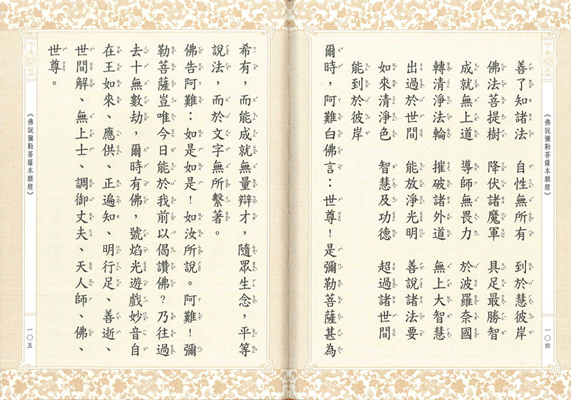 《佛說彌勒菩薩本願經》
一〇四
善了知諸法 自性無所有 到於慧彼岸
佛法菩提樹 降伏諸魔軍 具足最勝智
成就無上道 導師無畏力 於波羅奈國
轉清淨法輪 摧破諸外道 無上大智慧
出過於世間 能放淨光明 善說諸法要
如來清淨色 智慧及功德 超過諸世間
能到於彼岸
爾時，阿難白佛言：世尊！是彌勒菩薩甚為
希有，而能成就無量辯才，隨眾生念，平等
說法，而於文字無所繫著。
佛告阿難：如是如是！如汝所說。阿難！彌
勒菩薩豈唯今日能於我前以偈讚佛？乃往過
去十無數劫，爾時有佛，號焰光遊戲妙音自
在王如來、應供、正遍知、明行足、善逝、
世間解、無上士、調御丈夫、天人師、佛、
世尊。
《佛說彌勒菩薩本願經》
一〇五